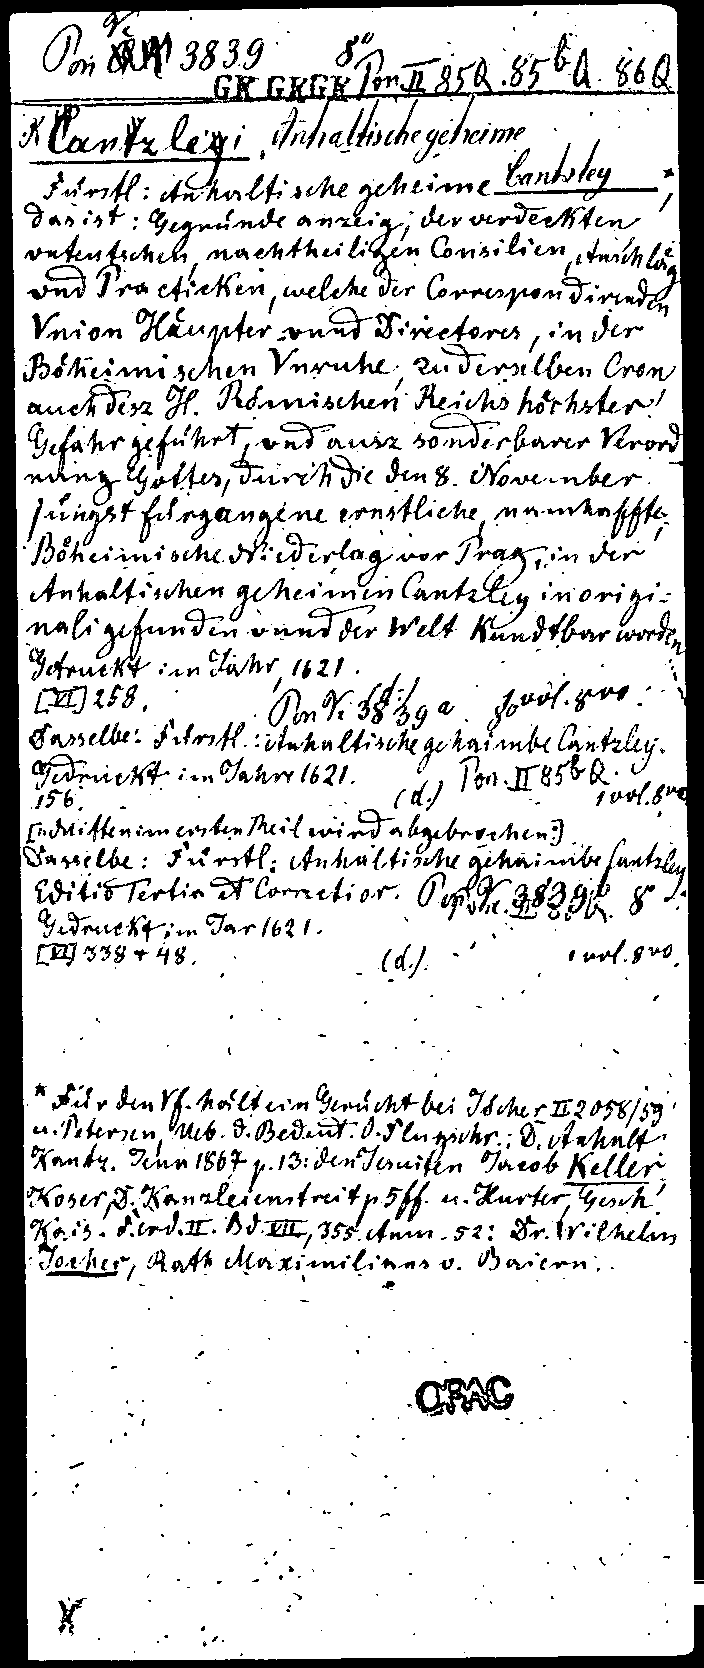 Pon Vc 3839 8°
GK GKGK Pon. II 85Q. 85bQ. 86Q
Cantzleyi, Anhaltische geheime
Fürstl: Anhaltische geheime Cantzley *,
das ist: Gegründe anzeig, der verdeckten
vnteutschen, nachtheiligen Consilien, Anschläg
vnd Practicken, welche der Correspondirenden
Vnion Häupter vnnd Directores, in der
Böheimischen Vnruhe, zu derselben Cron
auch desz H. Römischen Reichs höchster
Gefahr geführt, vnd ausz sonderbarer Verord
nung Gottes, durch die den 8. November
jüngst fürgangene ernstliche, namhaffte,
Böheimische Niederlag vor Prag, in der
Anhaltischen geheimen Cantzley in origi=
nali gefunden vnnd der Welt Kundtbar worden
Getruckt im Jahr, 1621.
[VI] 258. Pon Vc 3839 a 1 vol. 8vo.
Dasselbe: Fürstl.: Anhaltische gehaimbe Cantzley.
Gedruckt im Jahre 1621. Pon. II 85bQ.
156. (d.) 1 vol. 8vo
[Mitten im ersten Theil wird abgebrochen:]
Dasselbe: Fürstl: Anhaltische gehaimbe Cantzley
Editio Tertia et Correctior. Pon Vc 3839 b 8°
Gedruckt im Jar 1621.
[VI] 338 + 48. (d.). 1 vol. 8vo.
* Für den Vf. hält ein Gerücht bei Jöcher II 2058/59
u. Petersen, Ueb. d. Bedeut. d. Flugschr.: D. Anhalt.
Kantz. Jena 1867 p. 13: den Jesuiten Jacob Keller
Koser, D. Kanzleienstreit p 5ff. u. Hurter, Gesch.
Kais. Ferd. II. Bd. VIII, 355. Anm. 52: Dr. Wilhelm
Jocher, Rath Maximilians v. Baiern.
OPAC
X